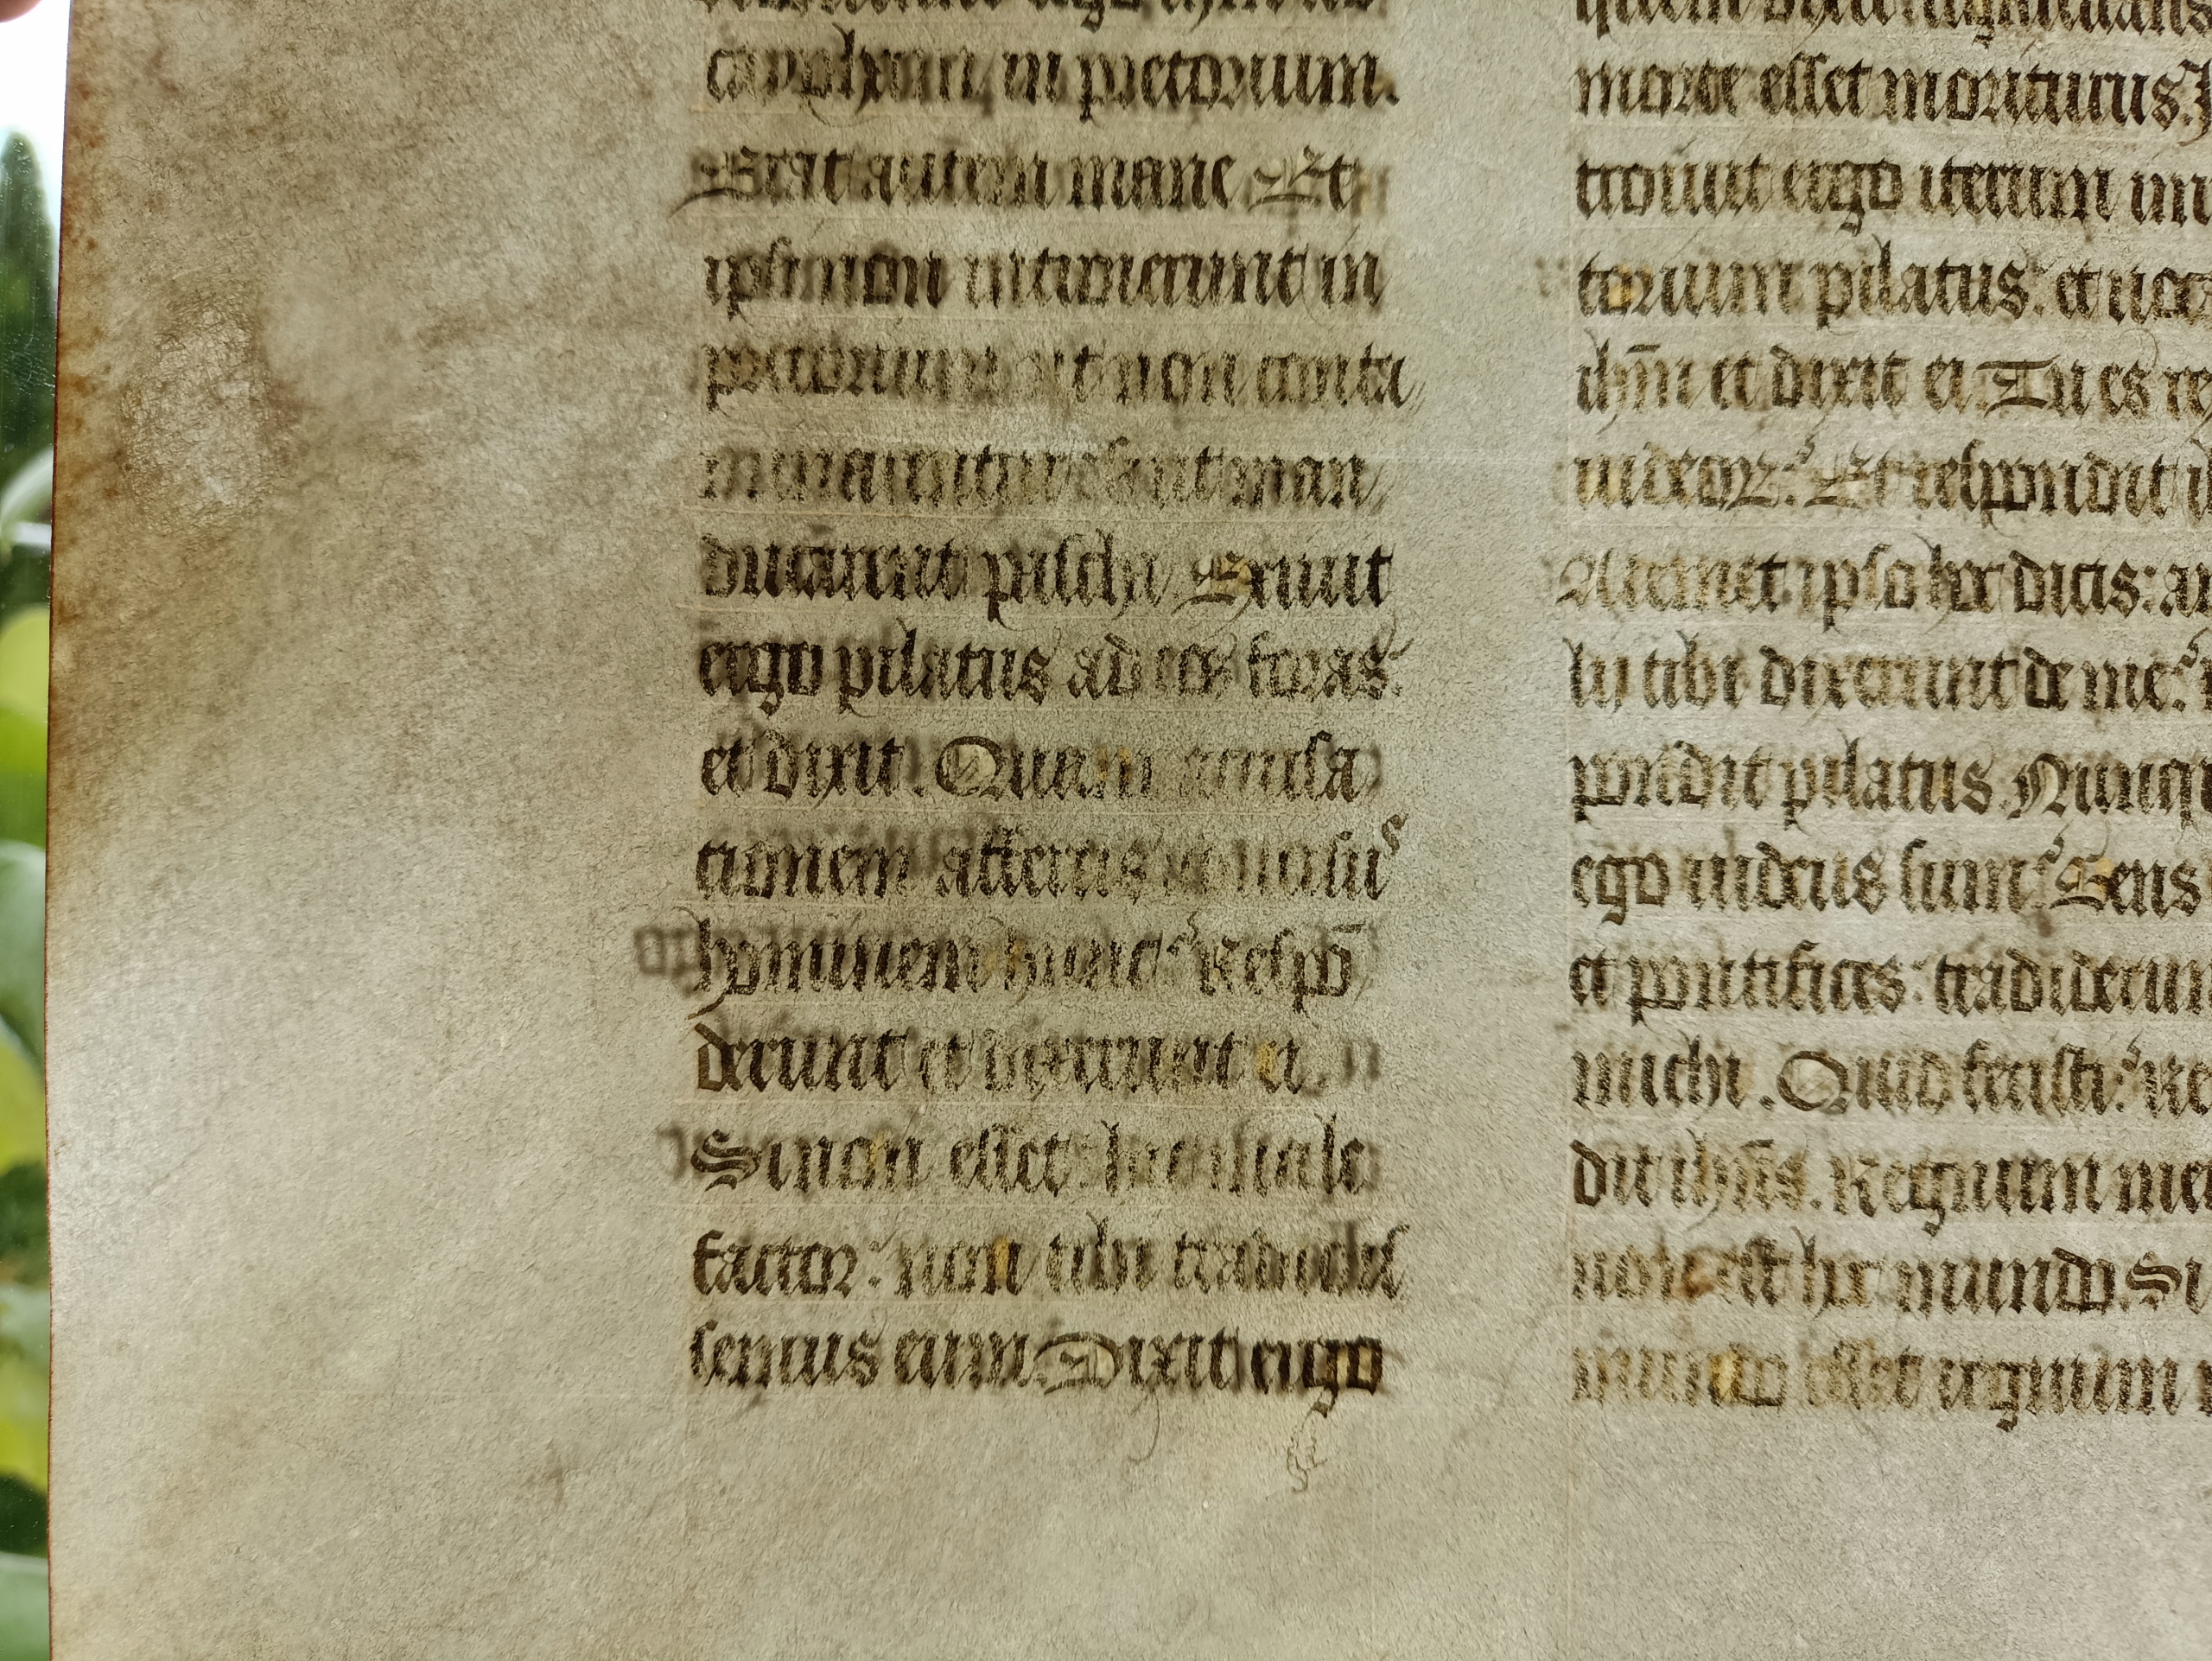 cayphan, in pretorium.
Erat autem mane Et
ipsi non introierunt in
pretorium: ut non conta
minarentur: sed ut man
ducarent pascha Exiuit
ergo pilatus ad eos foras:
et dixit. Quam accusa
tionem affertis aduersus
hominem hunc? Respō
derunt et dixerunt ei.
Si non esset hic male
factor: non tibi tradidis
semus eum Dixit ergo
morte esset moriturus. I
troiuit ergo iterum in
torium pilatus: et uoc
ihm̄ et dixit ei. Tu es re
iudeoꝝ? Et respondit i
A temet ipso hoc dicis: a
lij tibi dixerunt de me?
pondit pilatus. Nunq
ego iudeus sum? Gens
et pontifices: tradiderun
michi. Quid fecisti? Re
dit ihūs. Regnum me
non est hoc mundo. Si
mundo esset regnum